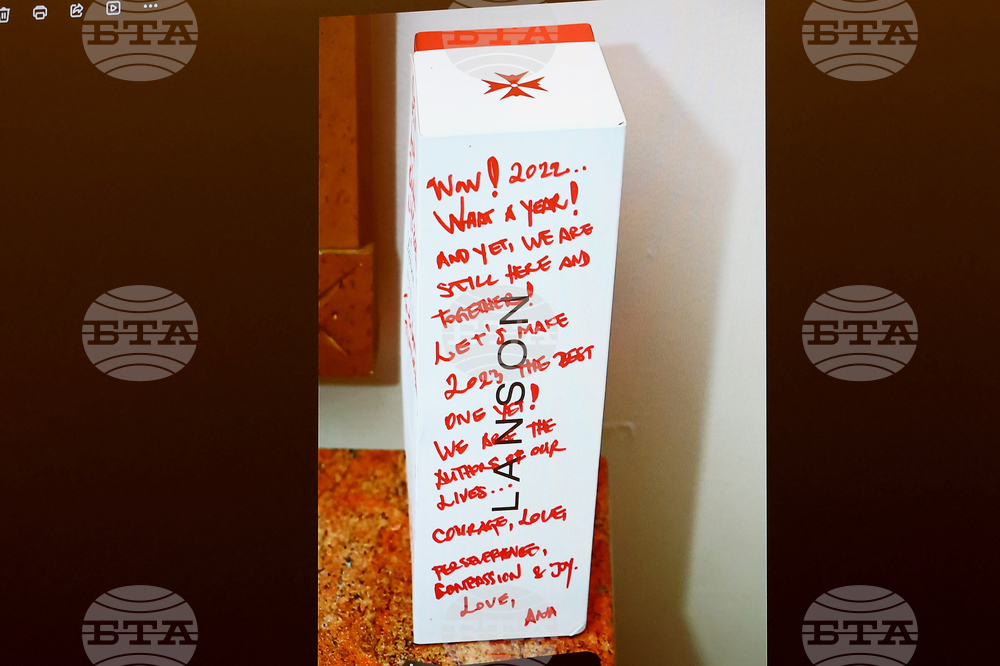 WOW! 2022..
WHAT A YEAR!
AND YET, WE ARE
STILL HERE AND
TOGETHER!
LET'S MAKE
2023 THE BEST
ONE YET!
WE ARE THE
AUTHORS OF OUR
LIVES...
COURAGE, LOVE,
PERSEVERANCE,
COMPASSION & JOY.
LOVE,
ANA
LANSON
БТА
БТА
БТА
БТА
БТА
БТА
БТА
БТА
БТА